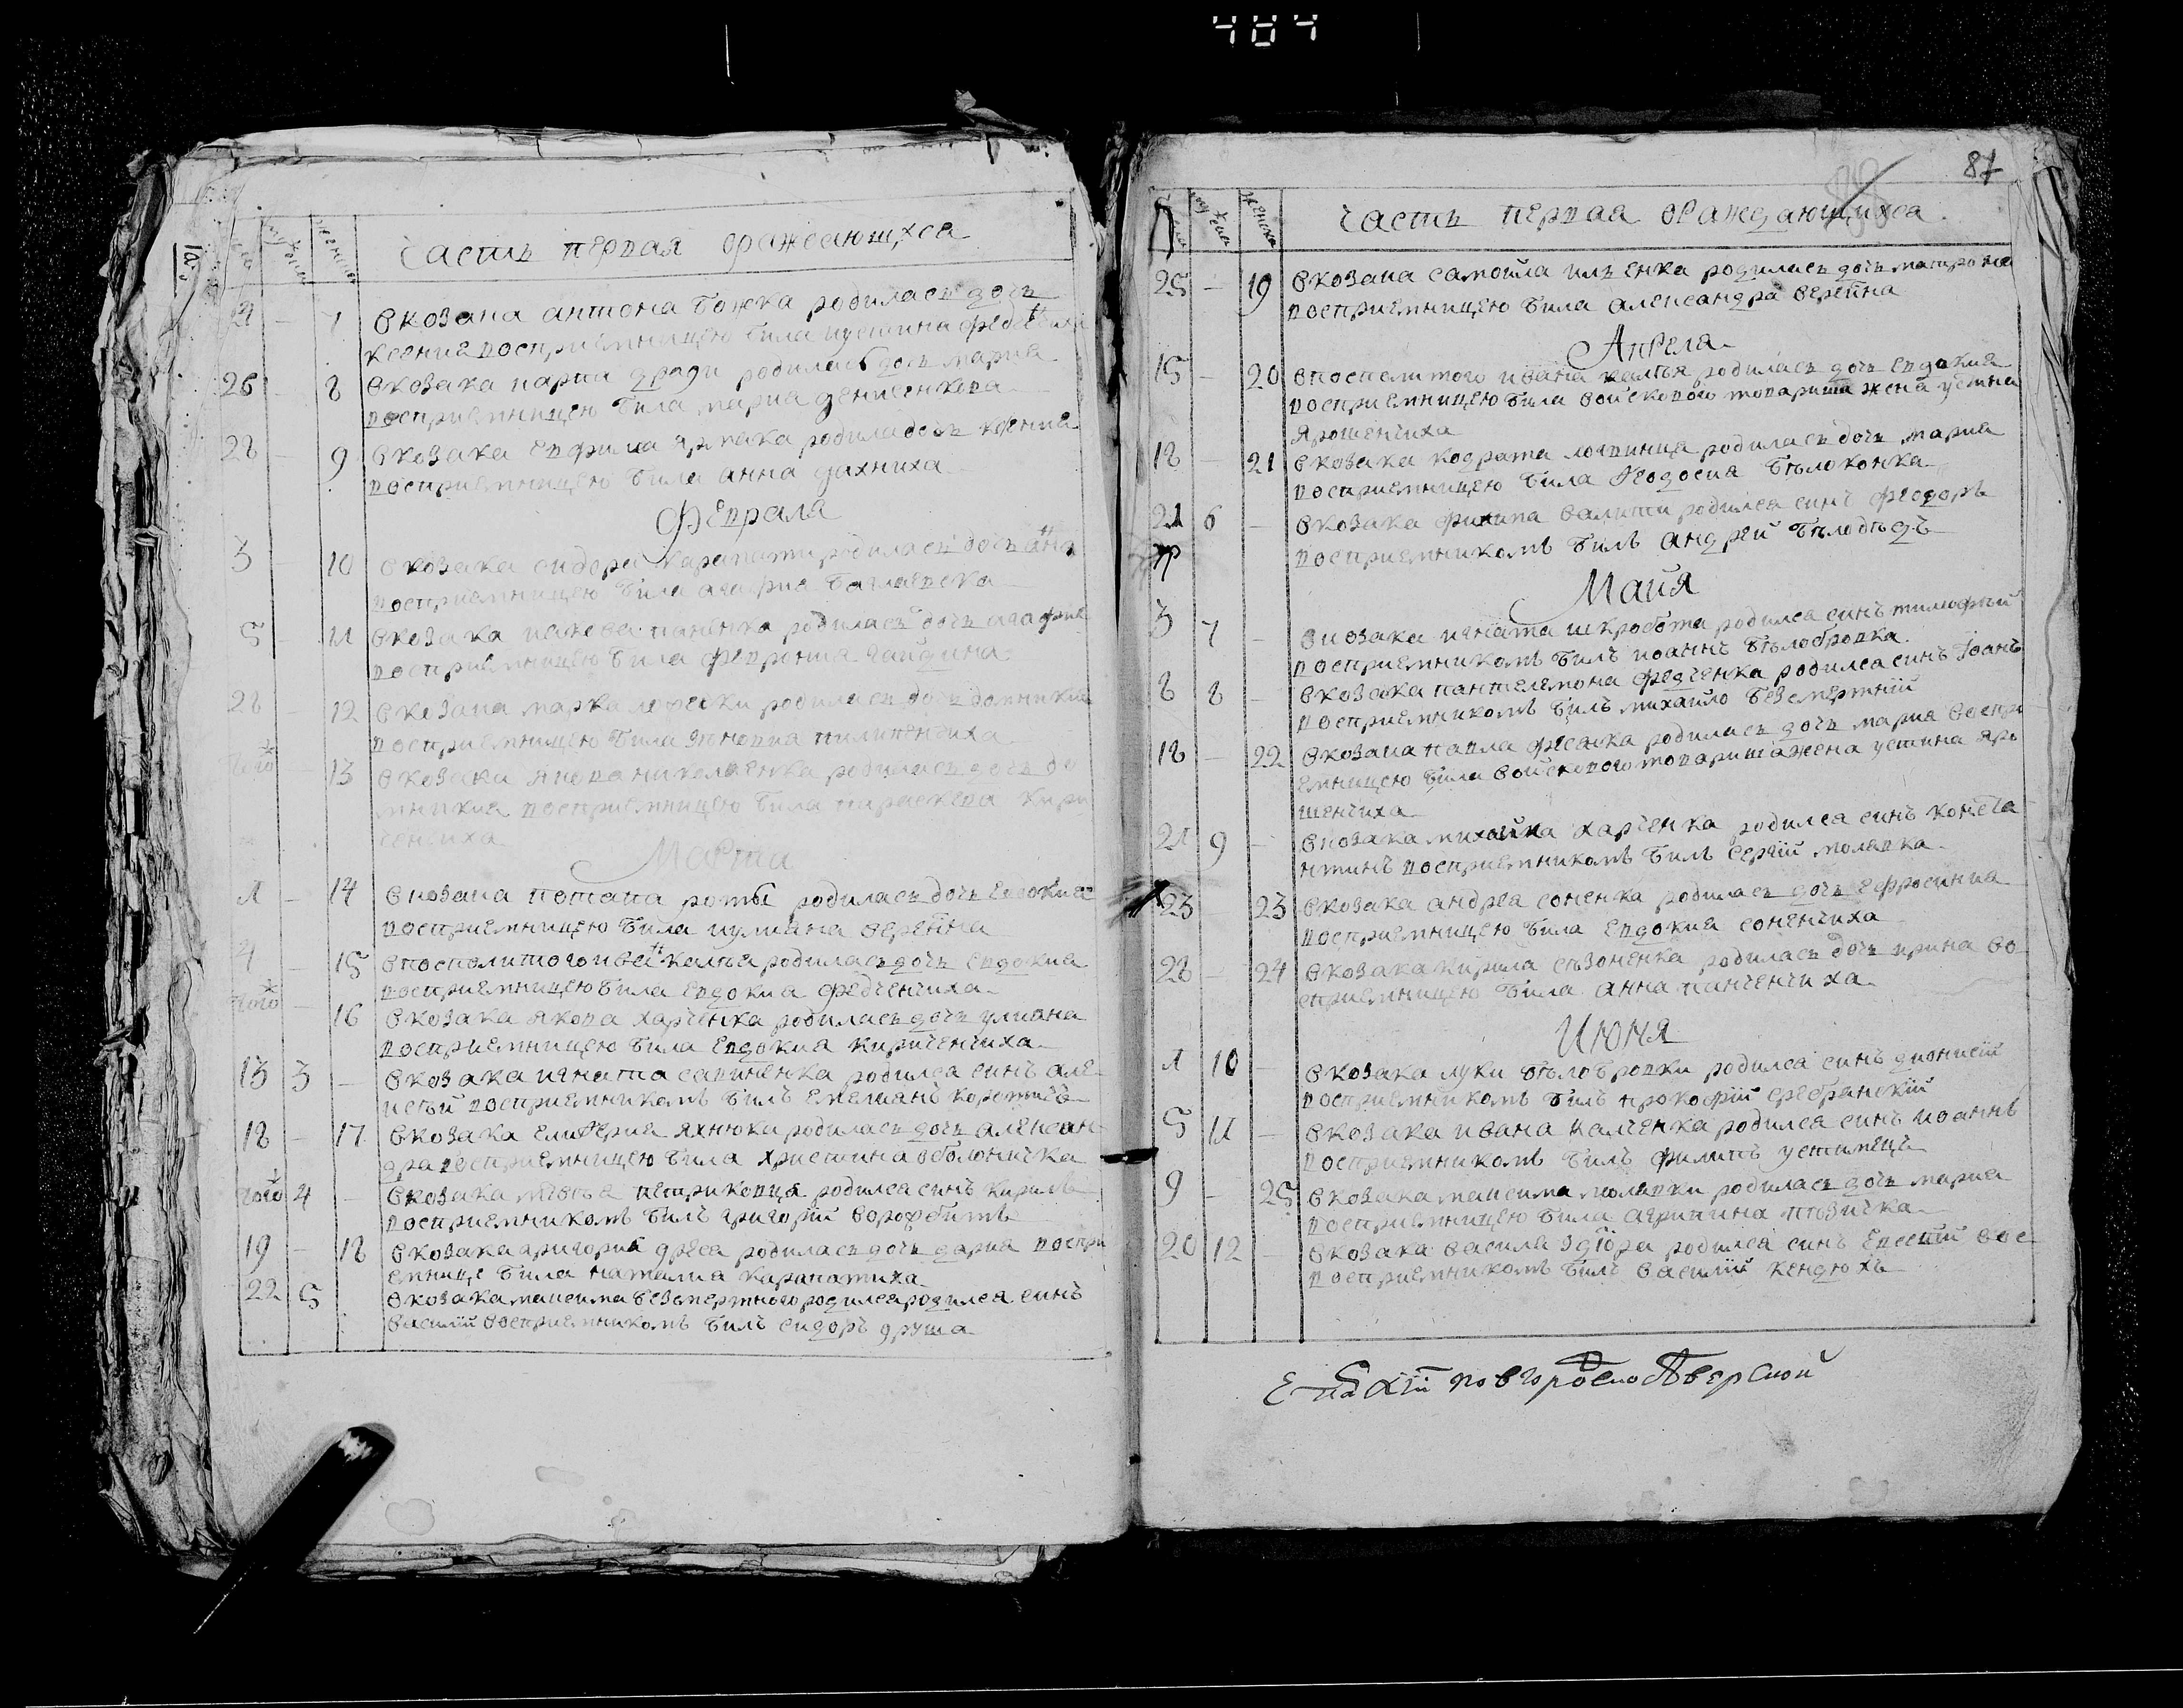 часть первая ораждающихся
7 в козака антона божка родилась дочь
ксения восприемницею била иустина федченчиха
26 – 8 в козака карпа родилась дочь мариа
восприемницею била мариа
28 – 9 в козака родила дочь ксениа
восприемницею била анна дахниха
Феврала
3 10 в козака сидора карапати родилась дочь анна
восприемницею била агафиа
5 – 11 в козака паненка родилась дочь агафиа
восприемницею била феврониа гайдина
28 – 12 в козака марка родилась дочь домникиа
восприемницею била зиновиа пилипенчиха
того – 13 в козака якова николаенка родилась дочь до
мникиа восприемницею била параскева кири
ченчиха
Марта
1 – 14 в козака потапа роты родилась дочь евдокиа
восприемницею била иулиана
4 – 15 в посполитого ивана калта родилась дочь евдокиа
восприемницею била евдокиа федченчиха
того – 16 в козака якова харченка родилась дочь улиана
восприемницею била евдокиа кириченчиха
13 3 – в козака игната савиченка родился синъ але
ксѣй восприемникомъ билъ емелианъ
18 – 17 в козака елиферия яхнюка родилась дочь алексан
дра восприемницею била христина оболоничка
того 4 – в козака петриковця родился синъ кирилъ
восприемникомъ билъ григорій
19 – 18 в козака григориа родилась дочь дариа воспри
емнице била наталиа карапатиха
22 5 в козака максима безсмертного родился родился синъ
василій восприемникомъ билъ сидоръ друша
87
часть первая ораждающихся
25 – 19 в козака самойла илъенка родилась дочь матрона
восприемницею била александра
Апреля
15 – 20 в посполитого ивана калтя родилась дочь евдокиа
восприемницею била войскового товариша жена устина
ярошенчиха
18 – 21 в козака кодрата логвинца родилась дочь мариа
восприемницею била феодосиа бѣлоконка
21 6 – в козака филипа калити родился синъ феодоръ
восприемникомъ билъ андрей бѣлодѣдъ
Майя
3 7 – в козака игната шкробота родился синъ тимофѣй
восприемникомъ билъ иоаннъ бѣлобровка
8 8 – в козака пантелемона федченка родился синъ іоанъ
восприемникомъ билъ михайло безсмертній
18 – 22 в козака павла фесенка родилась дочь мариа воспри
емницею била войскового товариша жена устина яро
шенчиха
21 9 – в козака михайла харченка родился синъ конста
нтинъ восприемникомъ билъ сергій молявка
23 – 23 в козака андрея соненка родилась дочь ефросиниа
восприемницею била евдокиа соненчиха
28 – 24 в козака кирила сѣзоненка родилась дочь ирина во
сприемницею била анна панченчиха
Июня
1 10 – в козака луки бѣлобровки родился синъ дионисій
восприемникомъ билъ прокофій сребранскій
5 11 – в козака ивана калченка родился синъ иоаннъ
восприемникомъ билъ филипъ устимецъ
9 – 25 в козака максима молявки родилась дочь мариа
восприемницею била агрипина
20 12 – в козака василя родился синъ евсевій вос
восприемникомъ билъ василій кендюхъ